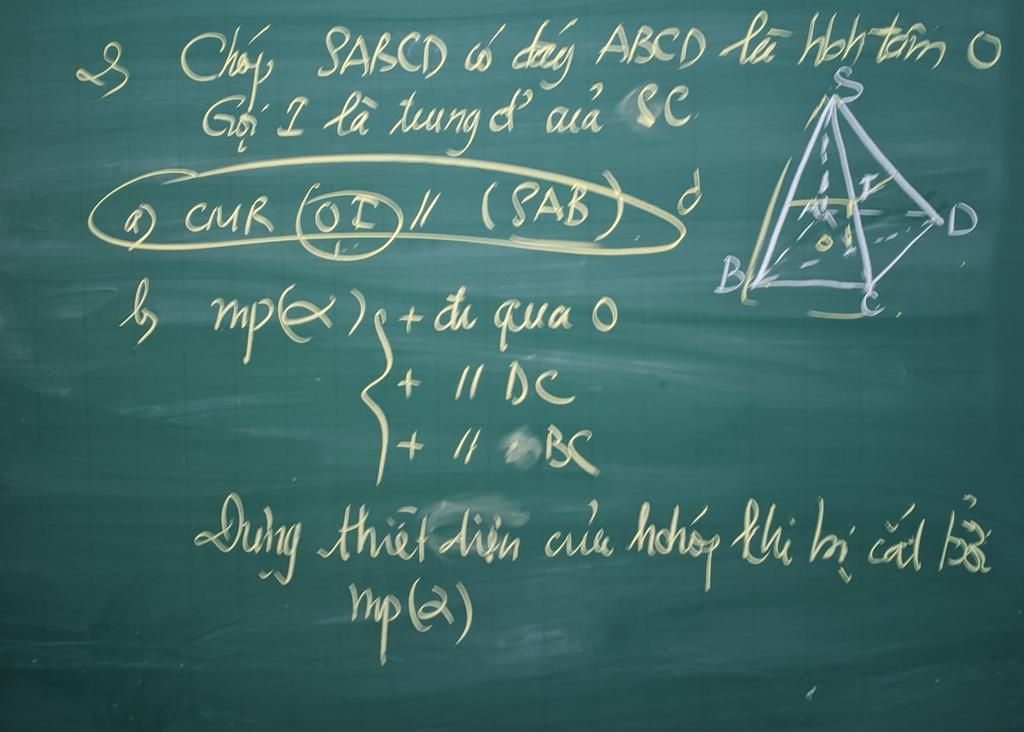 2) Chóp SABCD có đáy ABCD là hbh tâm O
Gọi I là trung đ' của SC
a) CMR OI // (SAB)
d
b) mp(α) { + đi qua O
+ // DC
+ // BC
Dựng thiết diện của hchóp khi bị cắt bởi
mp(α)
S
I
D
O
B
C